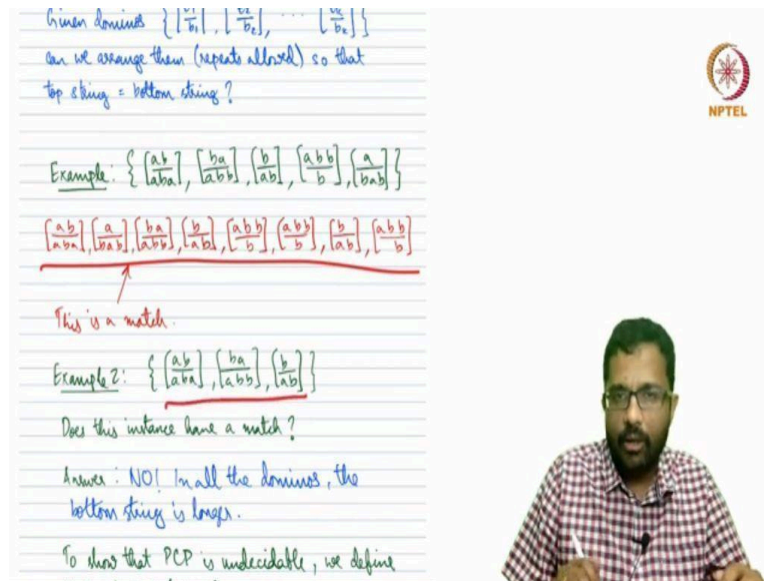 Given dominos {[a₁/b₁], [a₂/b₂], ... [aₖ/bₖ]}
can we arrange them (repeats allowed) so that
top string = bottom string?
NPTEL
Example: {[ab/aba], [ba/abb], [b/ab], [abb/b], [a/bab]}
[ab/aba], [a/bab], [ba/abb], [b/ab], [abb/b], [abb/b], [b/ab], [abb/b]
This is a match.
Example 2: {[ab/aba], [ba/abb], [b/ab]}
Does this instance have a match?
Answer: NO! In all the dominos, the
bottom string is longer.
To show that PCP is undecidable, we define